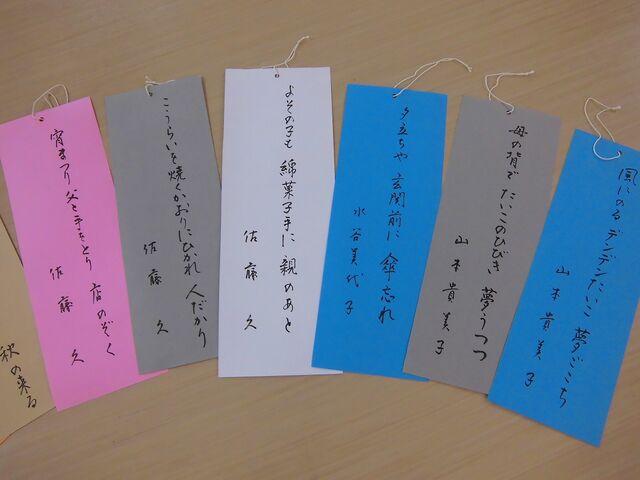 風にのる デンデンたいこ 夢ごこち
山本貴美子
母の背で たいこのひびき 夢うつつ
山本貴美子
夕立ちや 玄関前に 傘忘れ
水谷美代子
よその子も 綿菓子手に 親のあと
佐藤 久
こうらいを焼くかおりにひかれ 人だかり
佐藤 久
宵まつり 父と手をとり 店のぞく
佐藤 久
秋の来る